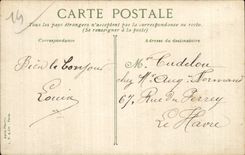 14
CARTE POSTALE
Tous les pays étrangers n'acceptent pas la correspondance au recto.
(Se renseigner à la poste)
Correspondance
Adresse du destinataire
Bien le bonjour
Louis
Mr Cudelou
chez Mr Aug. Normand
67, Rue du Perrey
Le Havre